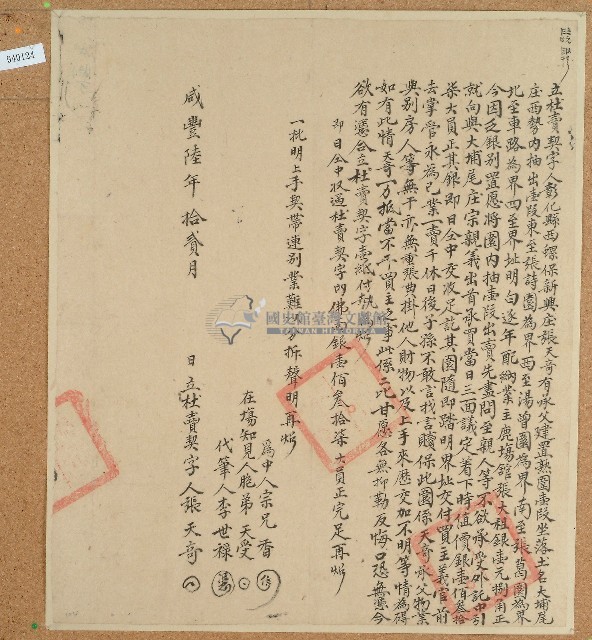 立杜賣契字人彰化縣西螺保新興庄張天奇有承父建置熟園壹段坐落土名大埔尾
庄西勢內抽出壹段東至張詩園為界西至湯曾園為界南至張萬園為界
北至車路為界四至界址明白逐年配納業主鹿場館張大租銀壹元捌角正
今因乏銀別置愿將園內抽壹段出賣先盡問至親人等不欲承受外託中引
就向與大埔尾庄宗親義出首承買當日三面議定着下時值價銀壹佰叁拾
柒大員正其銀即日仝中交收足訖其園隨即踏明界址交付買主義官前
去掌管永為己業一賣千休日後子孫不敢言找言贖保此園係天奇承父物業
與別房人等無干亦無重張典掛他人財物以及上手來歷交加不明等情為碍
如有此情天奇一力抵當不干買主之事此係二比甘愿各無抑勒反悔口恐無憑今
欲有憑合立杜賣契字壹紙付執為炤
即日仝中收過杜賣契字內佛面銀壹佰叁拾柒大員正完足再炤
一批明上手契帶連別業難以分拆聲明再炤
為中人宗兄香
在場知見人胞弟天受
代筆人李世祿
咸豐陸年拾貳月 日立杜賣契字人張天奇
國史館臺灣文獻館
TAIWAN HISTORICA
640124